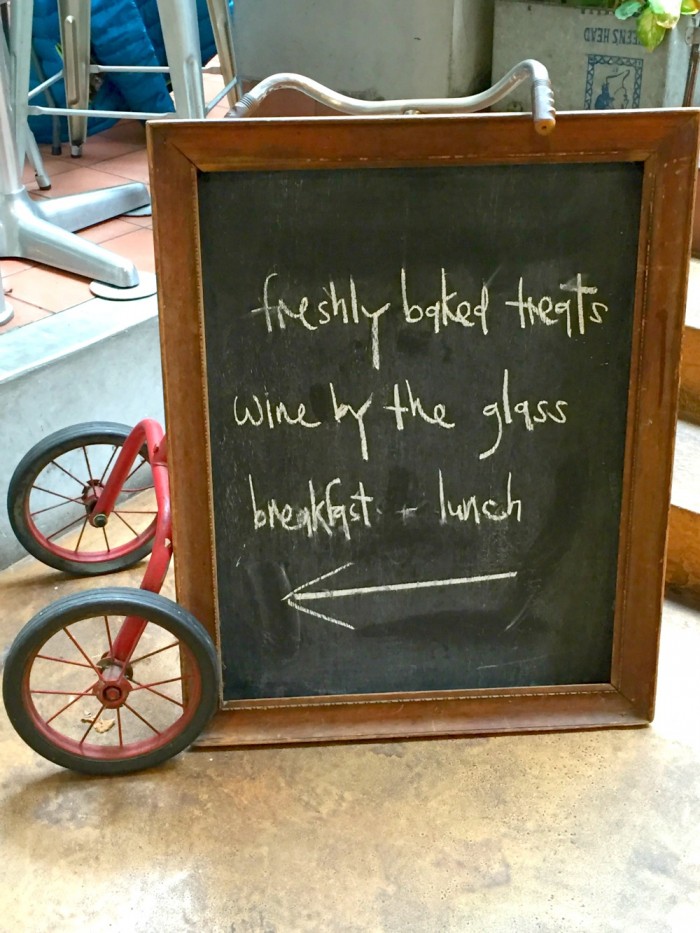 EENS HEAD
freshly baked treats
wine by the glass
breakfast + lunch